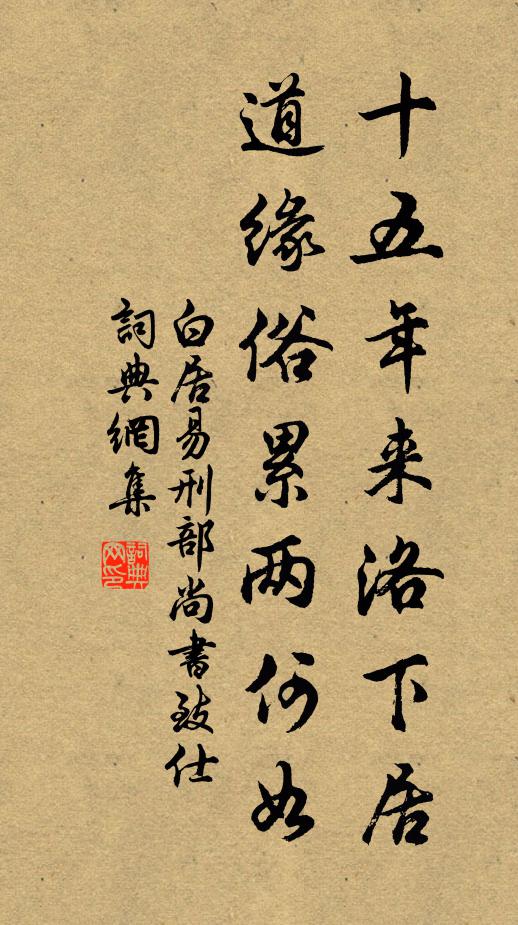 十五年来洛下居
道缘俗累两何如
白居易刑部尚書致仕
詞典網集
詞典网印